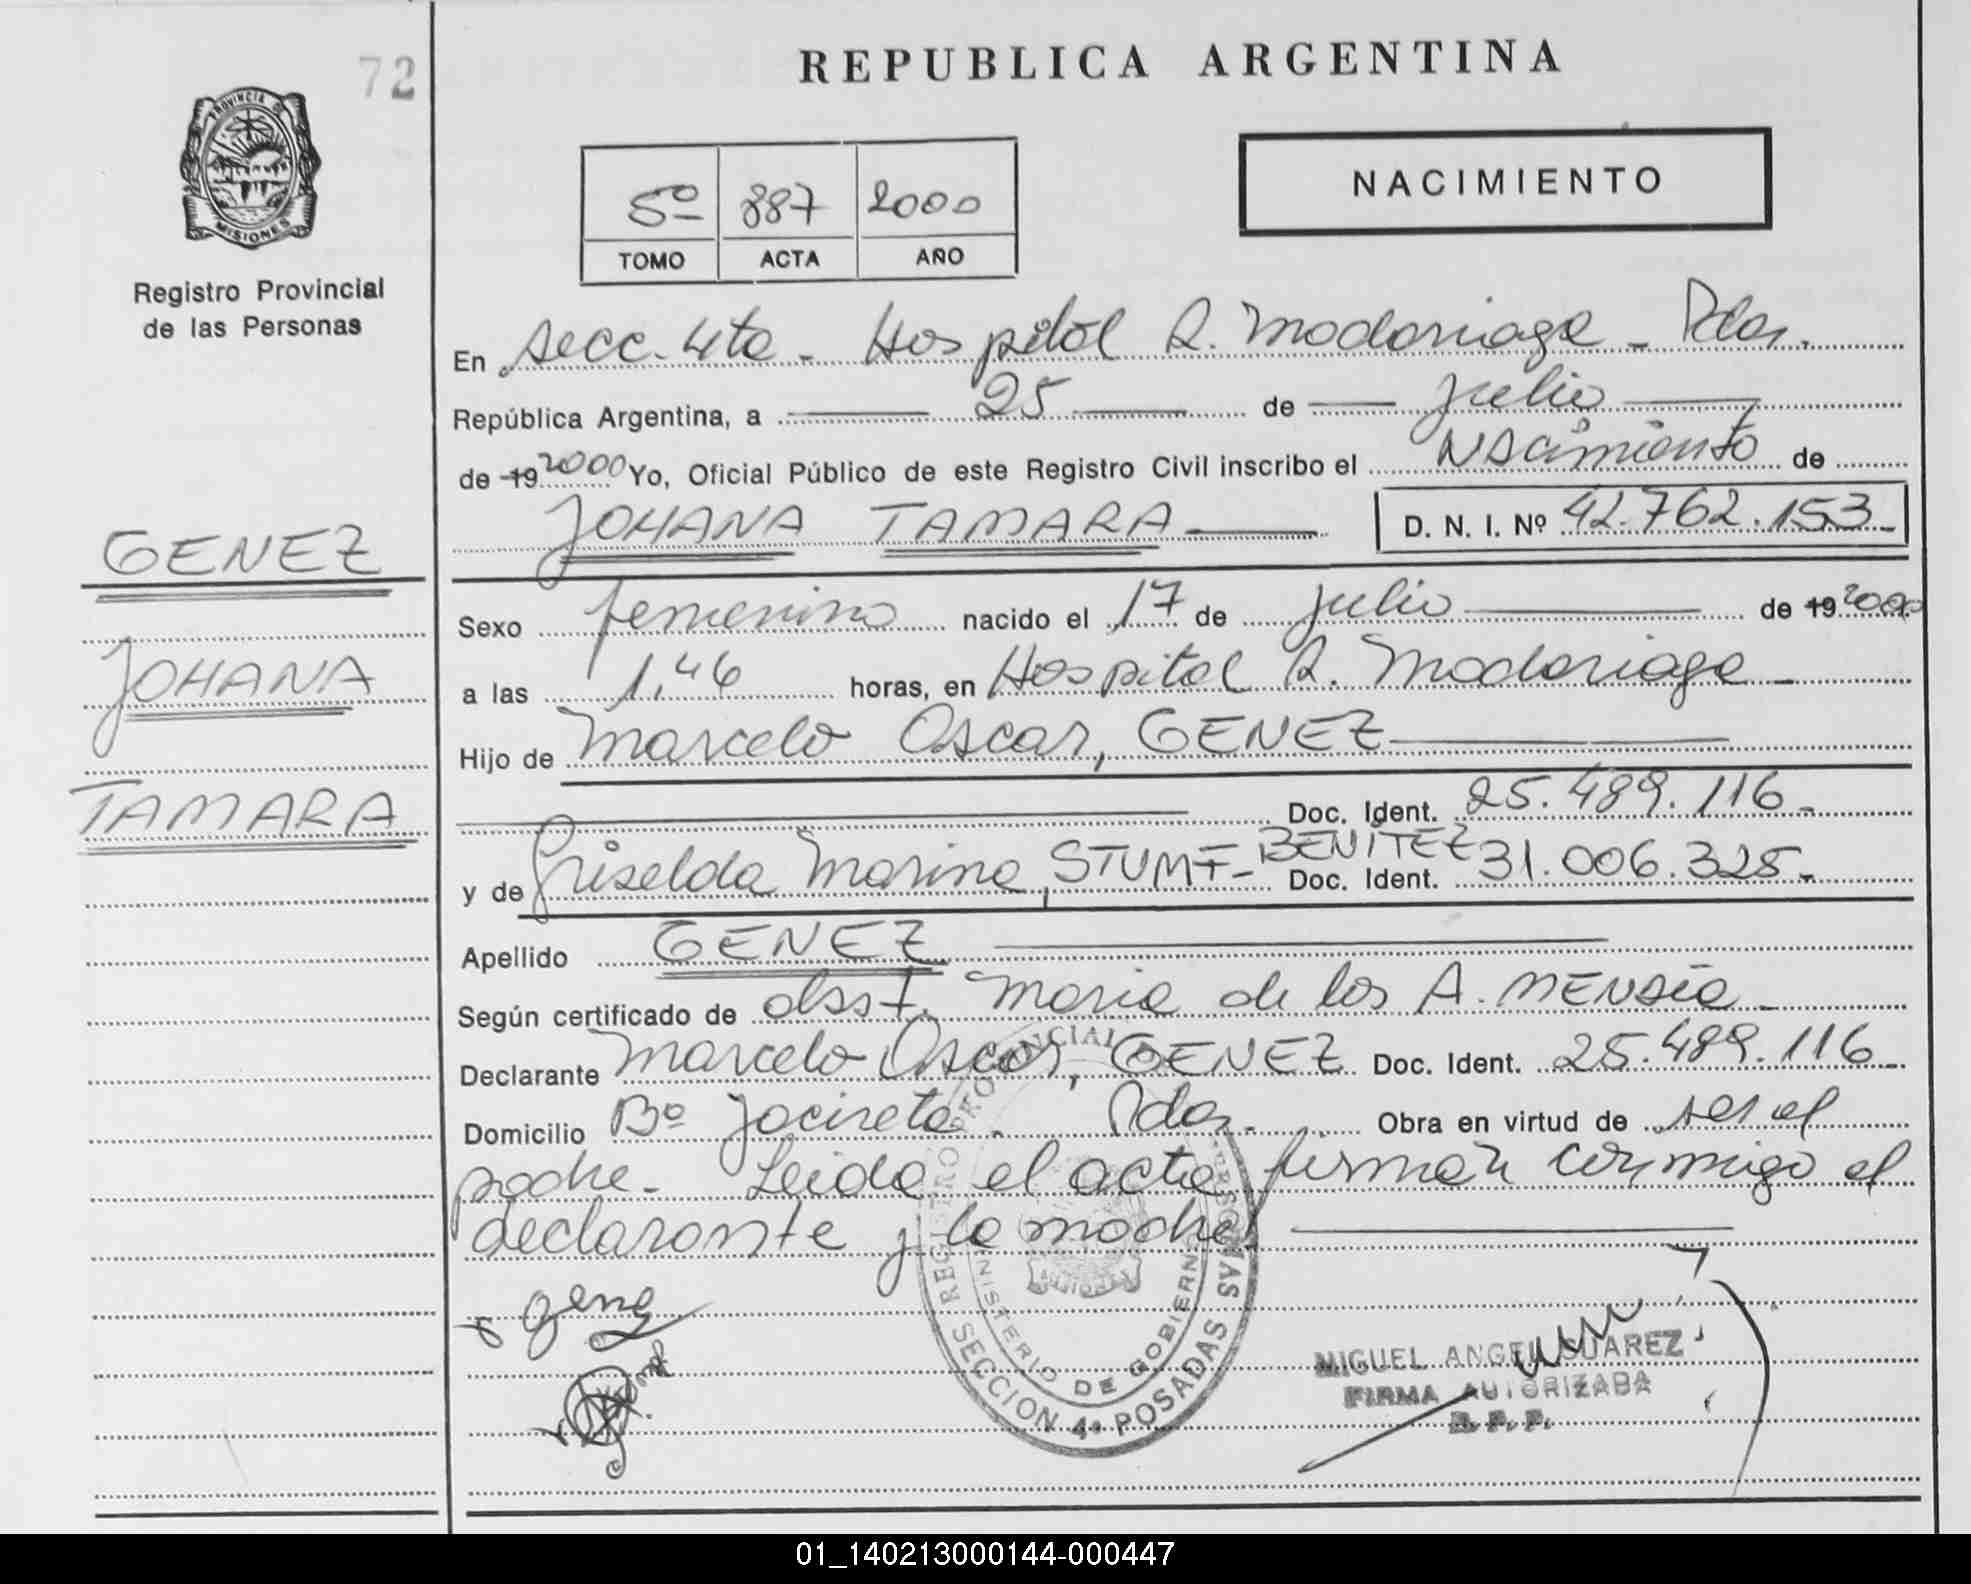 72
REPUBLICA ARGENTINA
PROVINCIA DE
MISIONES
Registro Provincial
de las Personas
5º 887 2000
TOMO ACTA AÑO
NACIMIENTO
En Secc. 4ta - Hospital R. Madariaga - Pdas.
República Argentina, a 25 de julio
de 19 2000 Yo, Oficial Público de este Registro Civil inscribo el Nacimiento de
JOHANA TAMARA D. N. I. Nº 42.762.153
GENEZ
JOHANA
TAMARA
Sexo femenino nacido el 17 de julio de 19 2000
a las 1,46 horas, en Hospital R. Madariaga -
Hijo de Marcelo Oscar, GENEZ
Doc. Ident. 25.489.116-
y de Griselda Marina, STUMF-BENITEZ Doc. Ident. 31.006.325-
Apellido GENEZ
Según certificado de obst. Maria de los A. MENSia -
Declarante Marcelo Oscar, GENEZ Doc. Ident. 25.489.116-
Domicilio Bº Jacireta - Pdas. Obra en virtud de ser el
padre - Leida el acta firman conmigo el
declarante y la madre
Genez
REGISTRO PROVINCIAL DE LAS PERSONAS
MINISTERIO DE GOBIERNO
SECCION 4ª POSADAS
MIGUEL ANGEL SUAREZ
FIRMA AUTORIZADA
R. P. P.
01_140213000144-000447